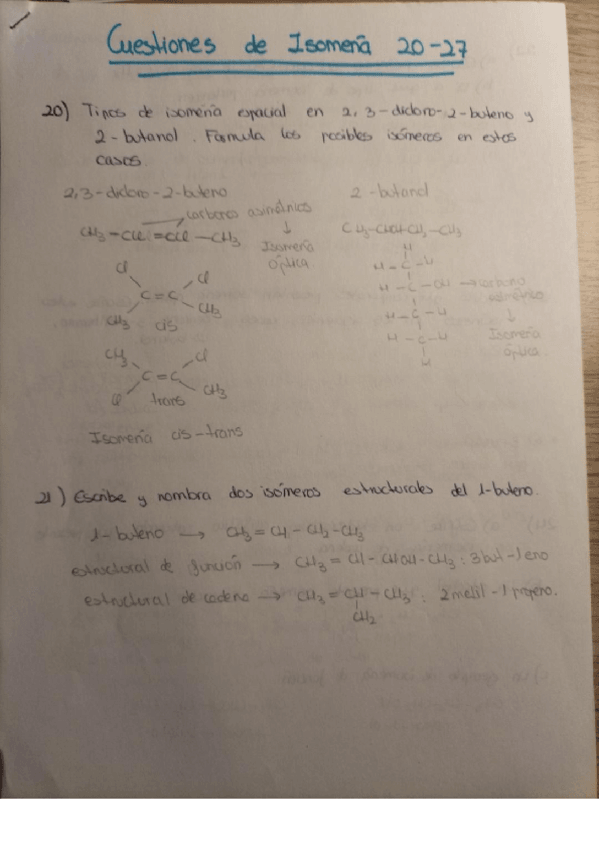 Cuestiones de Isomería 20-27
20) Tipos de isomería espacial en 2,3-dicloro-2-buteno y
2-butanol. Formula los posibles isómeros en estos
casos.
2,3-dicloro-2-buteno
2-butanol
carbonos asimétricos
CH3-CCl=CCl-CH3
↓
Isomería
óptica
CH3-CHOH-CH2-CH3
Cl Cl
C=C
CH3 CH3
cis
H
H-C-H
H-C-OH → carbono
asimétrico
H-C-H ↓
H-C-H Isomería
H óptica
CH3 Cl
C=C
Cl trans CH3
Isomería cis-trans
21) Escribe y nombra dos isómeros estructurales del 1-buteno.
1-buteno → CH3=CH-CH2-CH3
estructural de función → CH3=CH-CHOH-CH3: 3but-1eno
estructural de cadena → CH3=CH-CH3: 2metil-1propeno.
CH2